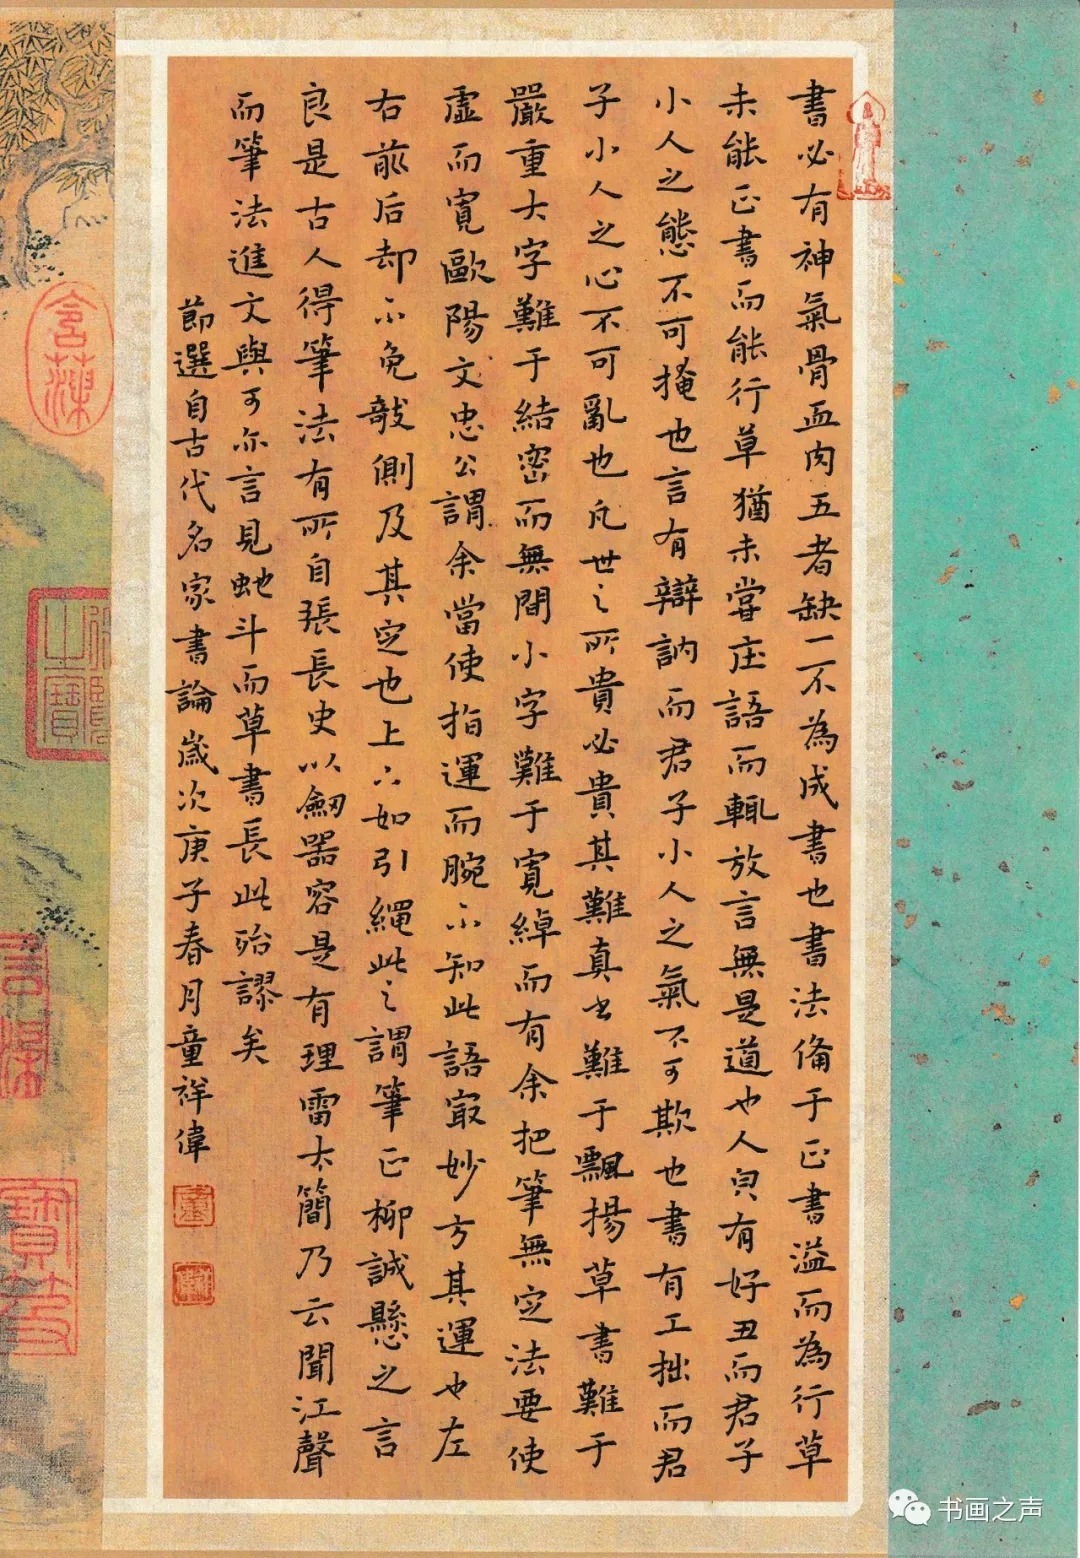 書必有神氣骨血肉五者缺一不為成書也書法備于正書溢而為行草
未能正書而能行草猶未嘗庄語而輒放言無是道也人皃有好丑而君子
小人之態不可掩也言有辯訥而君子小人之氣不可欺也書有工拙而君
子小人之心不可亂也凡世之所貴必貴其難真書難于飄揚草書難于
嚴重大字難于結密而無間小字難于寬綽而有余把筆無定法要使
虛而寬歐陽文忠公謂余當使指運而腕不知此語冣妙方其運也左
右前后却不免攲側及其定也上下如引繩此之謂筆正柳誠懸之言
良是古人得筆法有所自張長史以劒器容是有理雷太簡乃云聞江聲
而筆法進文與可亦言見蛇斗而草書長此殆謬矣
節選自古代名家書論歲次庚子春月童祥偉
书画之声